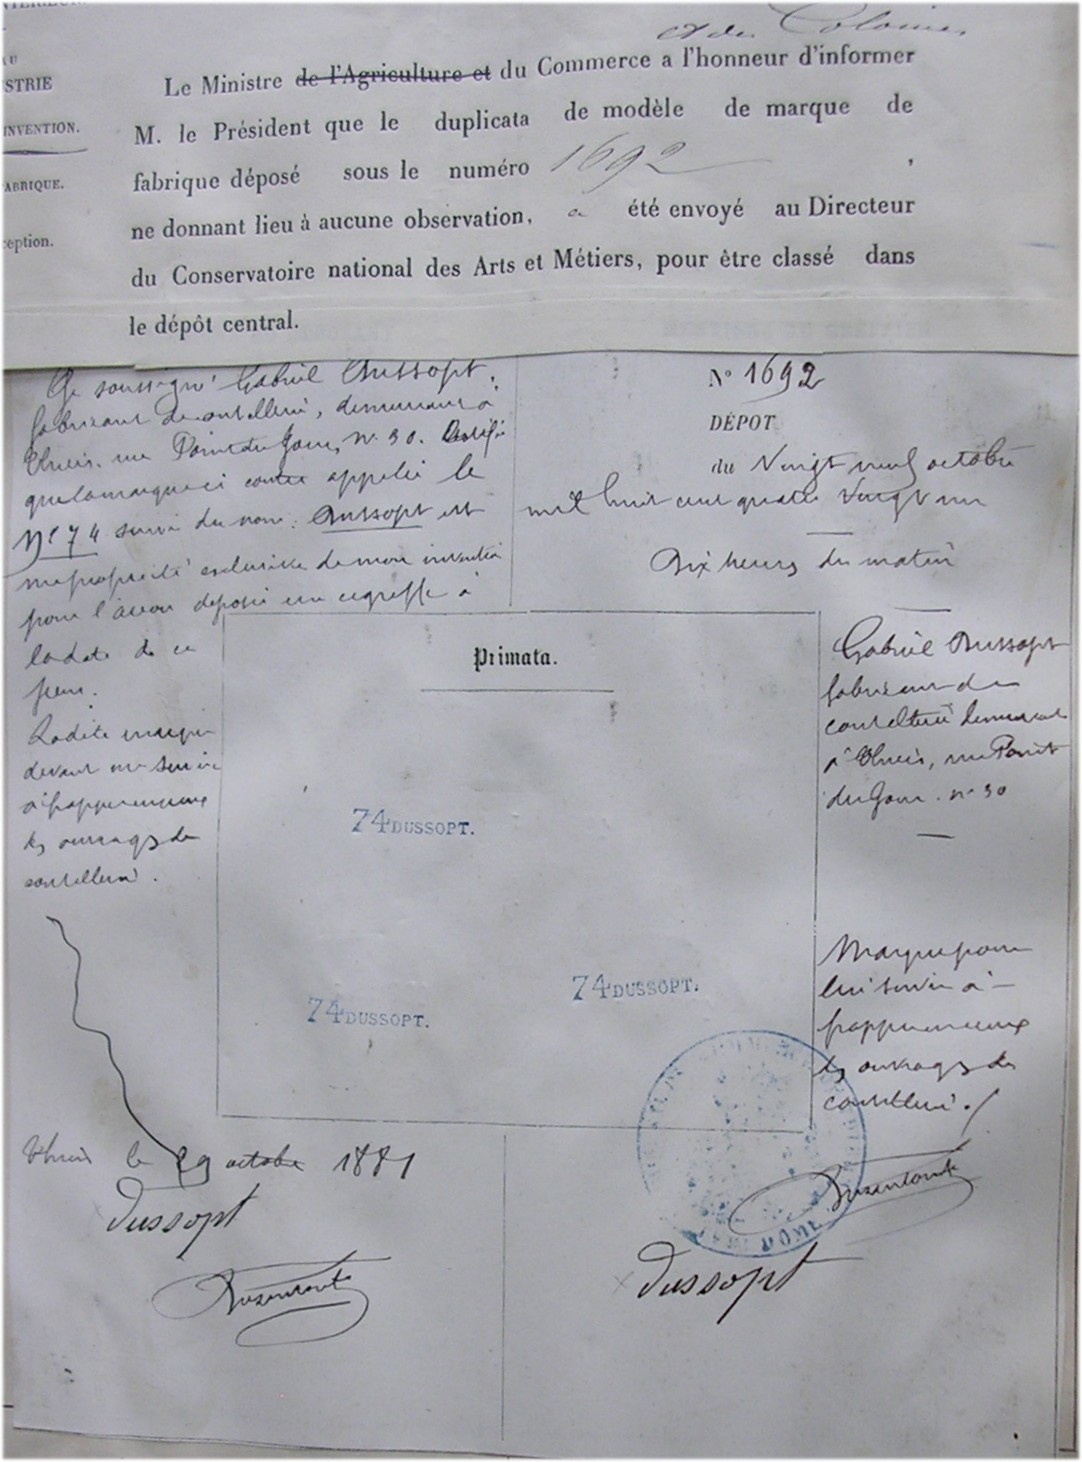 STRIE
INVENTION.
ABRIQUE.
ception.
et des Colonies
Le Ministre de l'Agriculture et du Commerce a l'honneur d'informer
M. le Président que le duplicata de modèle de marque de
fabrique déposé sous le numéro 1692,
ne donnant lieu à aucune observation, a été envoyé au Directeur
du Conservatoire national des Arts et Métiers, pour être classé dans
le dépôt central.
Je soussigné Gabriel Dussopt,
fabricant de coutellerie, demeurant à
Thiers, rue Point du Jour, n° 30. Certifie
que la marque ci contre appelée le
N° 74 suivi du nom: Dussopt est
ma propriété exclusive de mon invention
pour l'avoir déposée au greffe à
la date de ce
jour.
Ladite marque
devant me servir
à frapper
les ouvrages de
coutellerie.
Thiers le 29 octobre 1881
Dussopt
N° 1692
DÉPOT
du Vingt neuf octobre
mil huit cent quatre vingt un
Dix heures du matin
Primata.
74 DUSSOPT.
74 DUSSOPT.
74 DUSSOPT.
Gabriel Dussopt
fabricant de
coutellerie demeurant
à Thiers, rue Point
du Jour. n° 30
Marque pour
lui servir à
frapper
les ouvrages de
coutellerie./
Dussopt